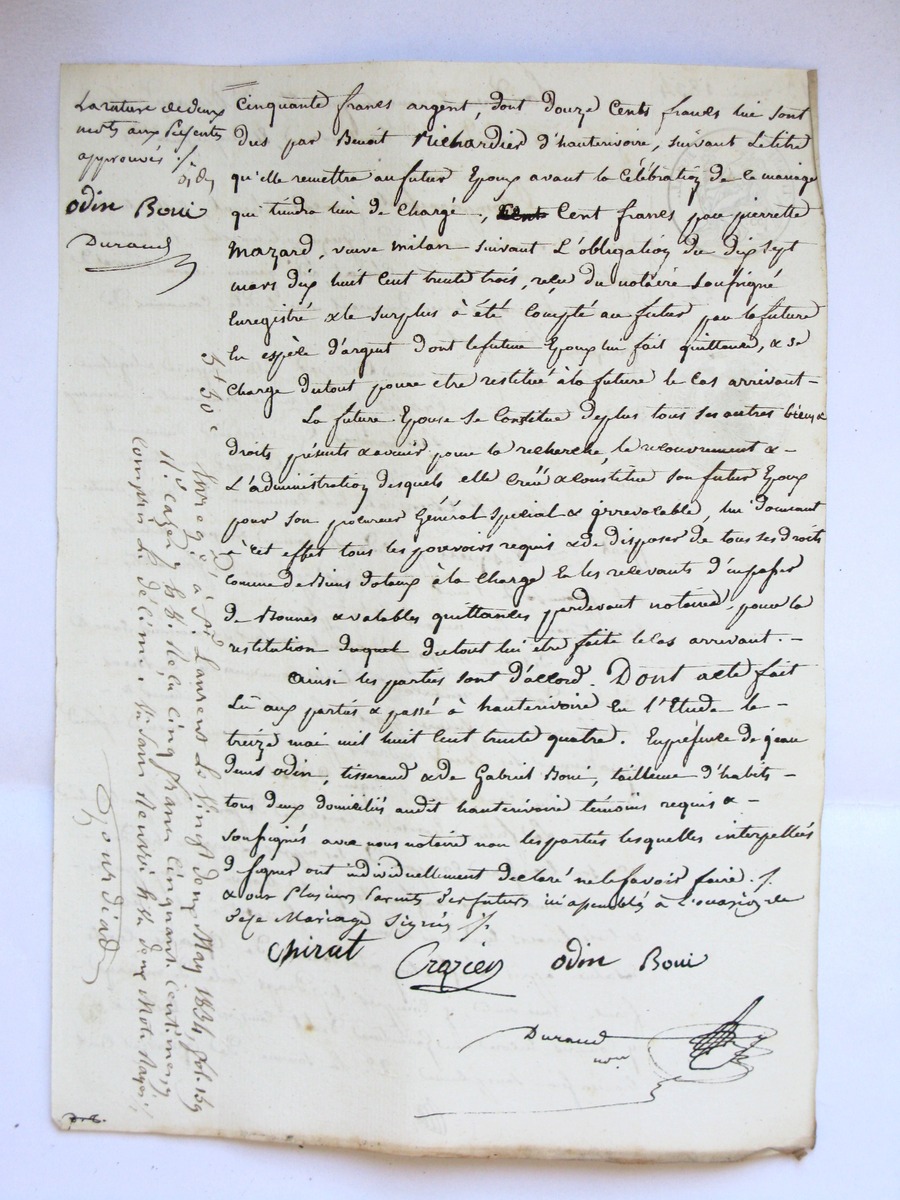 La rature de deux
mots aux présents
approuvés ./.
odin Boui
Durand
cinquante francs argent, dont douze cents francs lui sont
dus par Benoit Richardier d'hauterivoire, suivant le titre
qu'elle remettra au futur Epoux avant la célébration de ce mariage
qui tiendra lieu de chargé, Cent Cent francs par pierrette
mazard, veuve milan suivant L'obligation du dix sept
mars dix huit Cent trente trois, reçue du notaire soussigné
Enregistré & le surplus à été Compté au futur par la future
En espèce d'argent dont le future Epoux lui fait quittance, & se
charge du tout pour être restitué à la future le Cas arrivant -
La future Epouse se Constitue de plus tous ses autres biens &
droits présents & avenir pour la recherche, le recouvrement & -
L'administration desquels elle Créé & Constitue son futur Epoux
pour son procureur Général Spécial & irrevocable, lui donnant
à cet effet tous les pouvoirs requis & de disposer de tous ses droits
comme de Biens dotaux à la charge En les recevants d'en passer
de Bonnes & valables quittances, pardevant notaire, pour la
restitution du quel du tout lui être faite le cas arrivant. -
Ainsi les parties sont d'accord. Dont acte fait
Lû aux parties & passé à hauterivoire En l'Etude le -
treize mai mil huit Cent trente quatre. En présence de jean
denis odin, tisserand & de Gabriel Boui, tailleur d'habits -
tous deux domiciliés audit hauterivoire témoins requis & -
soussignés avec nous notaire non les parties lesquelles interpellées
d signer ont individuellement déclaré ne le savoir faire. ./.
& ont Plusieurs Parents des futurs ici assemblés à l'occasion de
Mariage Signés ./.
Chirat
odin Boui
Durand
nore
5f 50c
Enregé à St Laurent Le Vingt deux May 1834, fol. 139
Ro. cazes Reçu Cinq francs Cinquante Centimes,
compris Le décime
Gourdiad